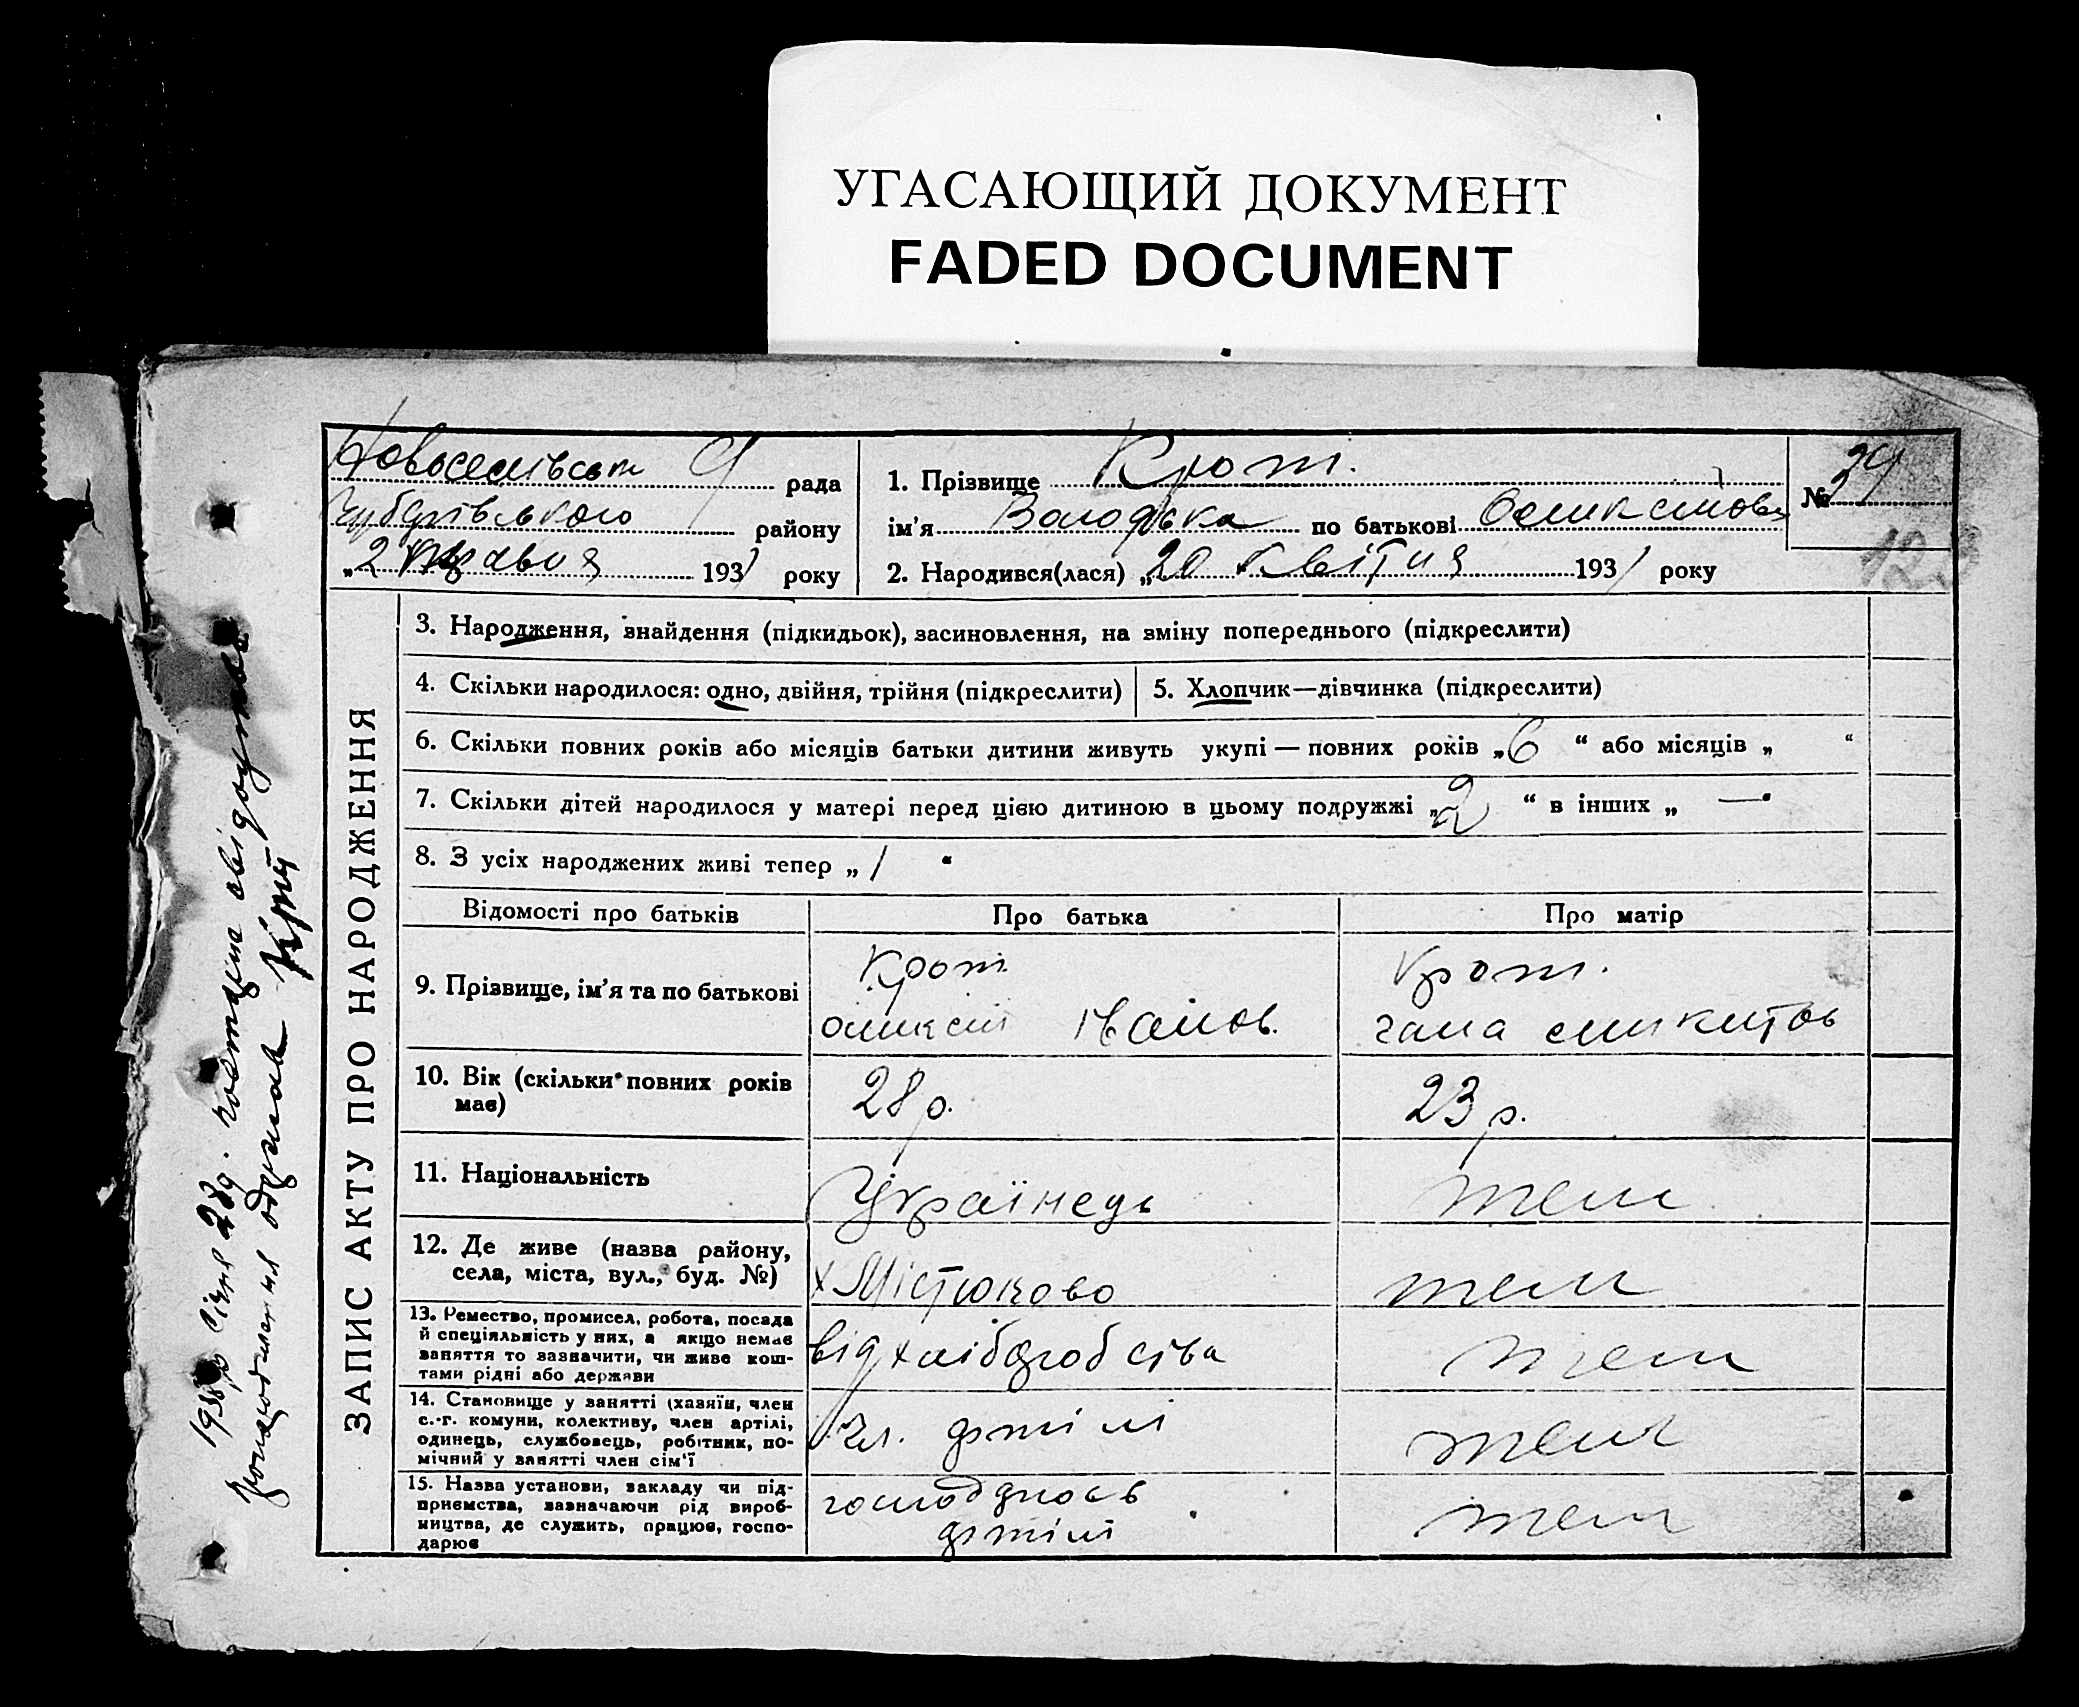 УГАСАЮЩИЙ ДОКУМЕНТ
FADED DOCUMENT
рада
району
„ 2 травня 1931 року
1. Прізвище Крот.
ім'я Володька по батькові
2. Народився(лася) „ 20 Квітня 1931 року
№ 29
123
ЗАПИС АКТУ ПРО НАРОДЖЕННЯ
3. Народження, знайдення (підкидьок), засиновлення, на зміну попереднього (підкреслити)
4. Скільки народилося: одно, двійня, трійня (підкреслити)
5. Хлопчик—дівчинка (підкреслити)
6. Скільки повних років або місяців батьки дитини живуть укупі — повних років „ 6 “ або місяців „ “
7. Скільки дітей народилося у матері перед цією дитиною в цьому подружжі „ 2 “ в інших „ — “
8. З усіх народжених живі тепер „ 1 “
Відомості про батьків
Про батька
Про матір
9. Прізвище, ім'я та по батькові
Крот
Оликсій Іванов.
Крот.
10. Вік (скільки повних років
має)
28 р.
23 р.
11. Національність
Українець
теж
12. Де живе (назва району,
села, міста, вул., буд. №)
х Містюково
теж
13. Ремество, промисел, робота, посада
й спеціяльність у них, а якщо немає
заняття то зазначити, чи живе кош-
тами рідні або держави
від хлібороб ства
теж
14. Становище у занятті (хазяїн, член
с.-г. комуни, колективу, член артілі,
одинець, службовець, робітник, по-
мічний у занятті член сім'ї
Чл. артілі
теж
15. Назва установи, закладу чи під-
приємства, зазначаючи рід вироб-
ництва, де служить, працює, госпо-
дарює
артілі
теж